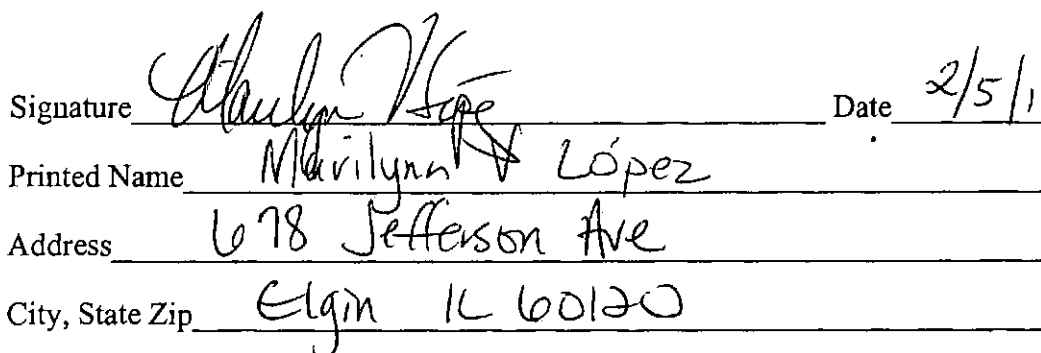 Signature Date 2/5/1
Printed Name Marilynn López
Address 678 Jefferson Ave
City, State Zip Elgin IL 60120